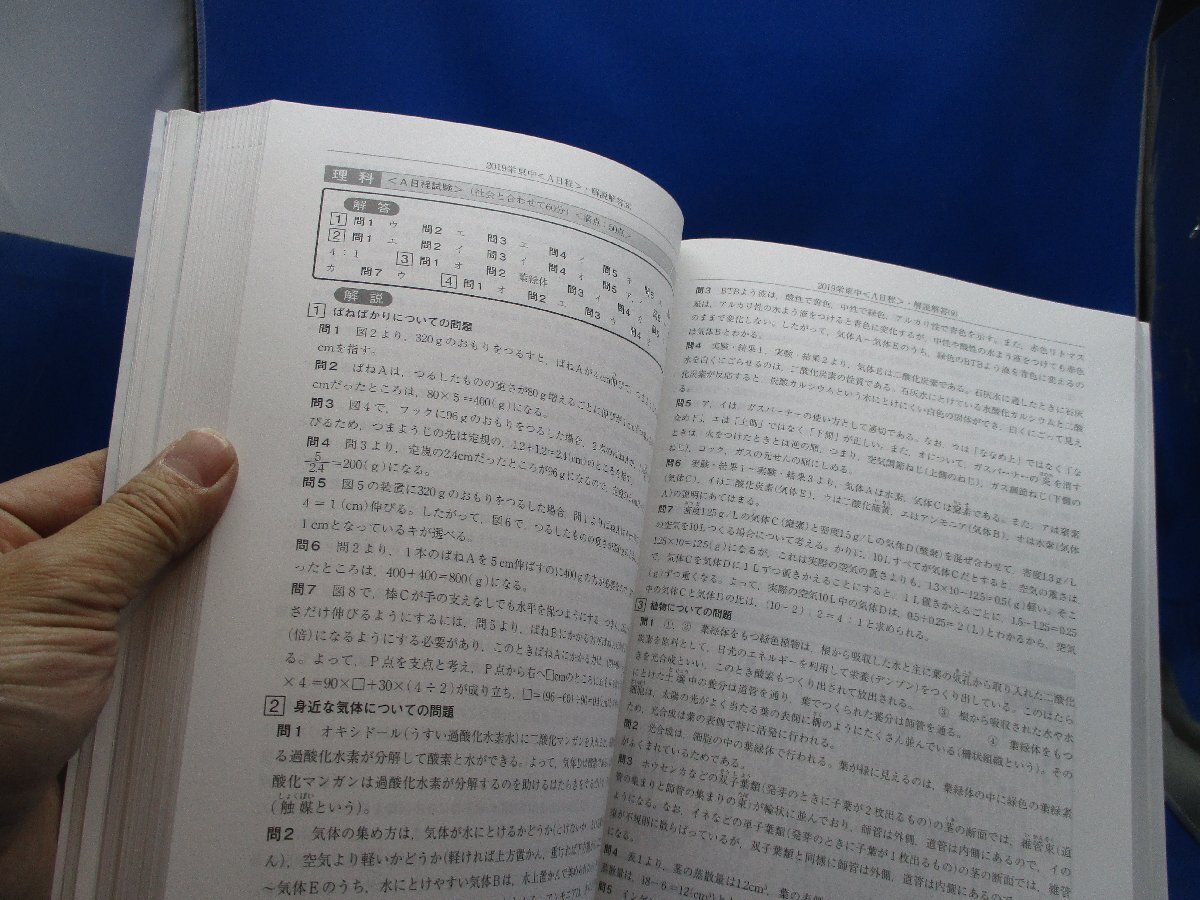 2019栄東中＜A日程＞・解説解答
理科 ＜A日程試験＞（社会と合わせて60分）＜満点：50点＞
解答
1 問1 ウ 問2 エ 問3 エ 問4 問5
2 問1 エ 問2 イ 問3 イ 問4 オ 問5 ア
4：1 3 問1 オ 問2 葉緑体 問3 イ 問4
カ 問7 ウ 4 問1 オ 問2 エ 問3
解説
1 ばねばかりについての問題
問1 図2より，320gのおもりをつるすと，ばねAが
cmを指す。
問2 ばねAは，つるしたものの重さが80g増えるごとに
cmだったところは，80×5＝400(g)になる。
問3 図4で，フックに96gのおもりをつるした場合，
びるため，つまようじの先は定規の，1.2＋1.2＝2.4(cm)のところを指す。
問4 問3より，定規の2.4cmだったところが96gになるので，
5/2.4＝200(g)になる。
問5 図5の装置に320gのおもりをつるした場合，問1より
4＝1(cm)伸びる。したがって，図6で，つるしたものの重さが
1cmとなっているキが選べる。
問6 問2より，1本のばねAを5cm伸ばすのに400gの力が必要
ったところは，400＋400＝800(g)になる。
問7 図8で，棒Cが手の支えなしでも水平を保つようにする
さだけ伸びるようにするには，問5より，ばねBにかかる
(倍)になるようにする必要があり，このときばねAにかかる力は，
る。よって，P点を支点と考え，P点から右へ□cmのところに
×4＝90×□＋30×(4÷2)が成り立ち，□＝(96－60)÷90＝
2 身近な気体についての問題
問1 オキシドール(うすい過酸化水素水)に二酸化マンガンを入れると，
る過酸化水素が分解して酸素と水ができる。よって，気体Dは酸素で
酸化マンガンは過酸化水素が分解するのを助けるはたらきをする
(触媒という)。
問2 気体の集め方は，気体が水にとけるかどうか(とけないか
ん)，空気より軽いかどうか(軽ければ上方置かん，重ければ下方置
～気体Eのうち，水にとけやすい気体Bは，水上置かんで集め
2019栄東中＜A日程＞・解説解答(9)
問3 BTBよう液は，酸性で黄色，中性で緑色，アルカリ性で青色を示す。また，赤色リトマス
紙は，アルカリ性の水よう液をつけると青色に変化するが，中性や酸性の水よう液をつけても赤色
のままで変化しない。したがって，気体A～気体Eのうち，緑色のBTBよう液を青色に変えるの
は気体Bとわかる。
問4 実験・結果1，実験・結果2より，気体Eは二酸化炭素である。石灰水に通したときに石灰
水を白くにごらせるのは，二酸化炭素の性質である。石灰水にとけている水酸化カルシウムと二酸
化炭素が反応すると，炭酸カルシウムという水にとけにくい白色の固体ができ，白くにごって見え
る。
問5 ア，イは，ガスバーナーの使い方として適切である。なお，ウは「ななめ上」ではなく「な
なめ下」，エは「上部」ではなく「下部」が正しい。また，オについて，ガスバーナーの炎を消す
ときは，火をつけたときとは逆の順，つまり，空気調節ねじ(上側のねじ)，ガス調節ねじ(下側の
ねじ)，コック，ガスの元せんの順にしめる。
問6 実験・結果1～実験・結果3より，気体Aは水素，気体Cは窒素である。また，アは窒素
(気体C)，イは二酸化炭素(気体E)，ウは二酸化硫黄，エはアンモニア(気体B)，オは水素(気体
A)の説明にあてはまる。
問7 密度1.25g/Lの気体C(窒素)と密度1.5g/Lの気体D(酸素)を混ぜ合わせて，密度1.3g/L
の空気を10Lつくる場合について考える。かりに，10Lすべてが気体Cだとすると，空気の重さは
1.25×10＝12.5(g)になるが，これは実際の空気の重さよりも，1.3×10－12.5＝0.5(g)軽い。そこ
で，気体Cを気体Dに1Lずつ置きかえることにすると，1L置きかえるごとに，1.5－1.25＝0.25
(g)ずつ重くなる。よって，実際の空気10L中の気体Dは，0.5÷0.25＝2(L)とわかるから，空気
中の気体Cと気体Dの比は，(10－2)：2＝4：1と求められる。
3 植物についての問題
問1 ①，② 葉緑体をもつ緑色植物は，根から吸収した水と主に葉の気孔から取り入れた二酸化
炭素を原料として，日光のエネルギーを利用して栄養(デンプン)をつくり出している。このはたら
きを光合成といい，このとき酸素もつくり出されて放出される。 ③ 根から吸収された水や水
にとけた土壌中の養分は道管を通り，葉でつくられた養分は師管を通る。 ④ 葉緑体をもつ
細胞は，太陽の光がよく当たる葉の表側に柵のようにたくさん並んでいる(柵状組織という)。その
ため，光合成は葉の表側で特に活発に行われる。
問2 光合成は，細胞の中の葉緑体で行われる。葉が緑に見えるのは，葉緑体の中に緑色の葉緑素
がふくまれているためである。
問3 ホウセンカなどの双子葉類(発芽のときに子葉が2枚出るもの)の茎の断面では，維管束(道
管の集まりと師管の集まりの束)が輪状に並んでおり，師管は外側，道管は内側にあるので，イの
ようになる。なお，イネなどの単子葉類(発芽のときに子葉が1枚出るもの)の茎の断面では，維管
束が不規則に散らばっているが，双子葉類と同様に師管は外側，道管は内側にあるので
になる。
問4 表1より，茎の蒸散量は1.2cm³，葉の表側の
蒸散量は，18－6＝12(cm³)
問5 イン